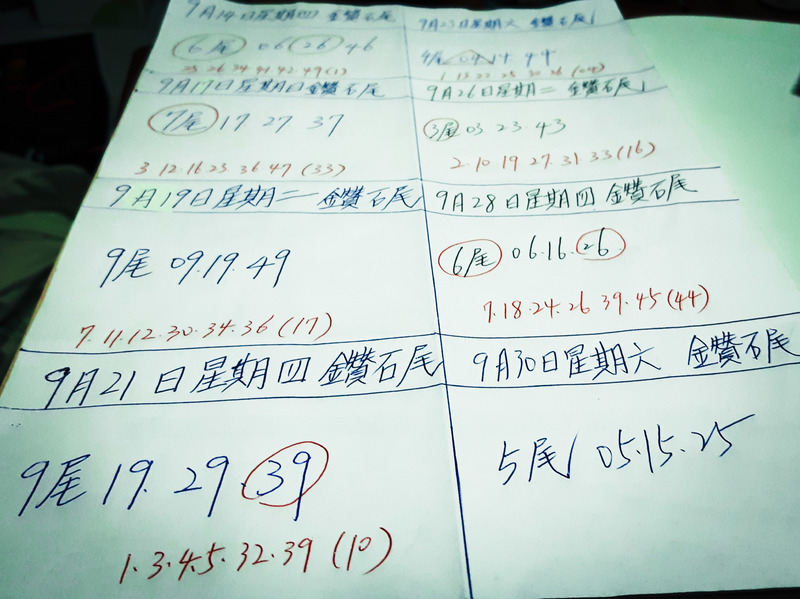 9月14日星期四 鑽石尾
6尾 06 26 46
9月17日星期日鑽石尾
7尾 17 27 37
3 12.16 23.36 47 (33)
9月19日星期二 鑽石尾
9尾 09.19.49
7.11.12.30.34.36 (17)
9月21日星期四 鑽石尾
9尾 19. 29.39
1.3.4.5.32.39 (10)
9月23日星期六 鑽石尾
9月26日星期二 鑽石尾
3尾 03 23.43
2.10 19 27.31.33 (16)
9月28日星期四 鑽石尾
6尾 06.16.26
7.18.24.26 39.45 (44)
9月30日星期六 鑽石尾
5尾 05.15.25